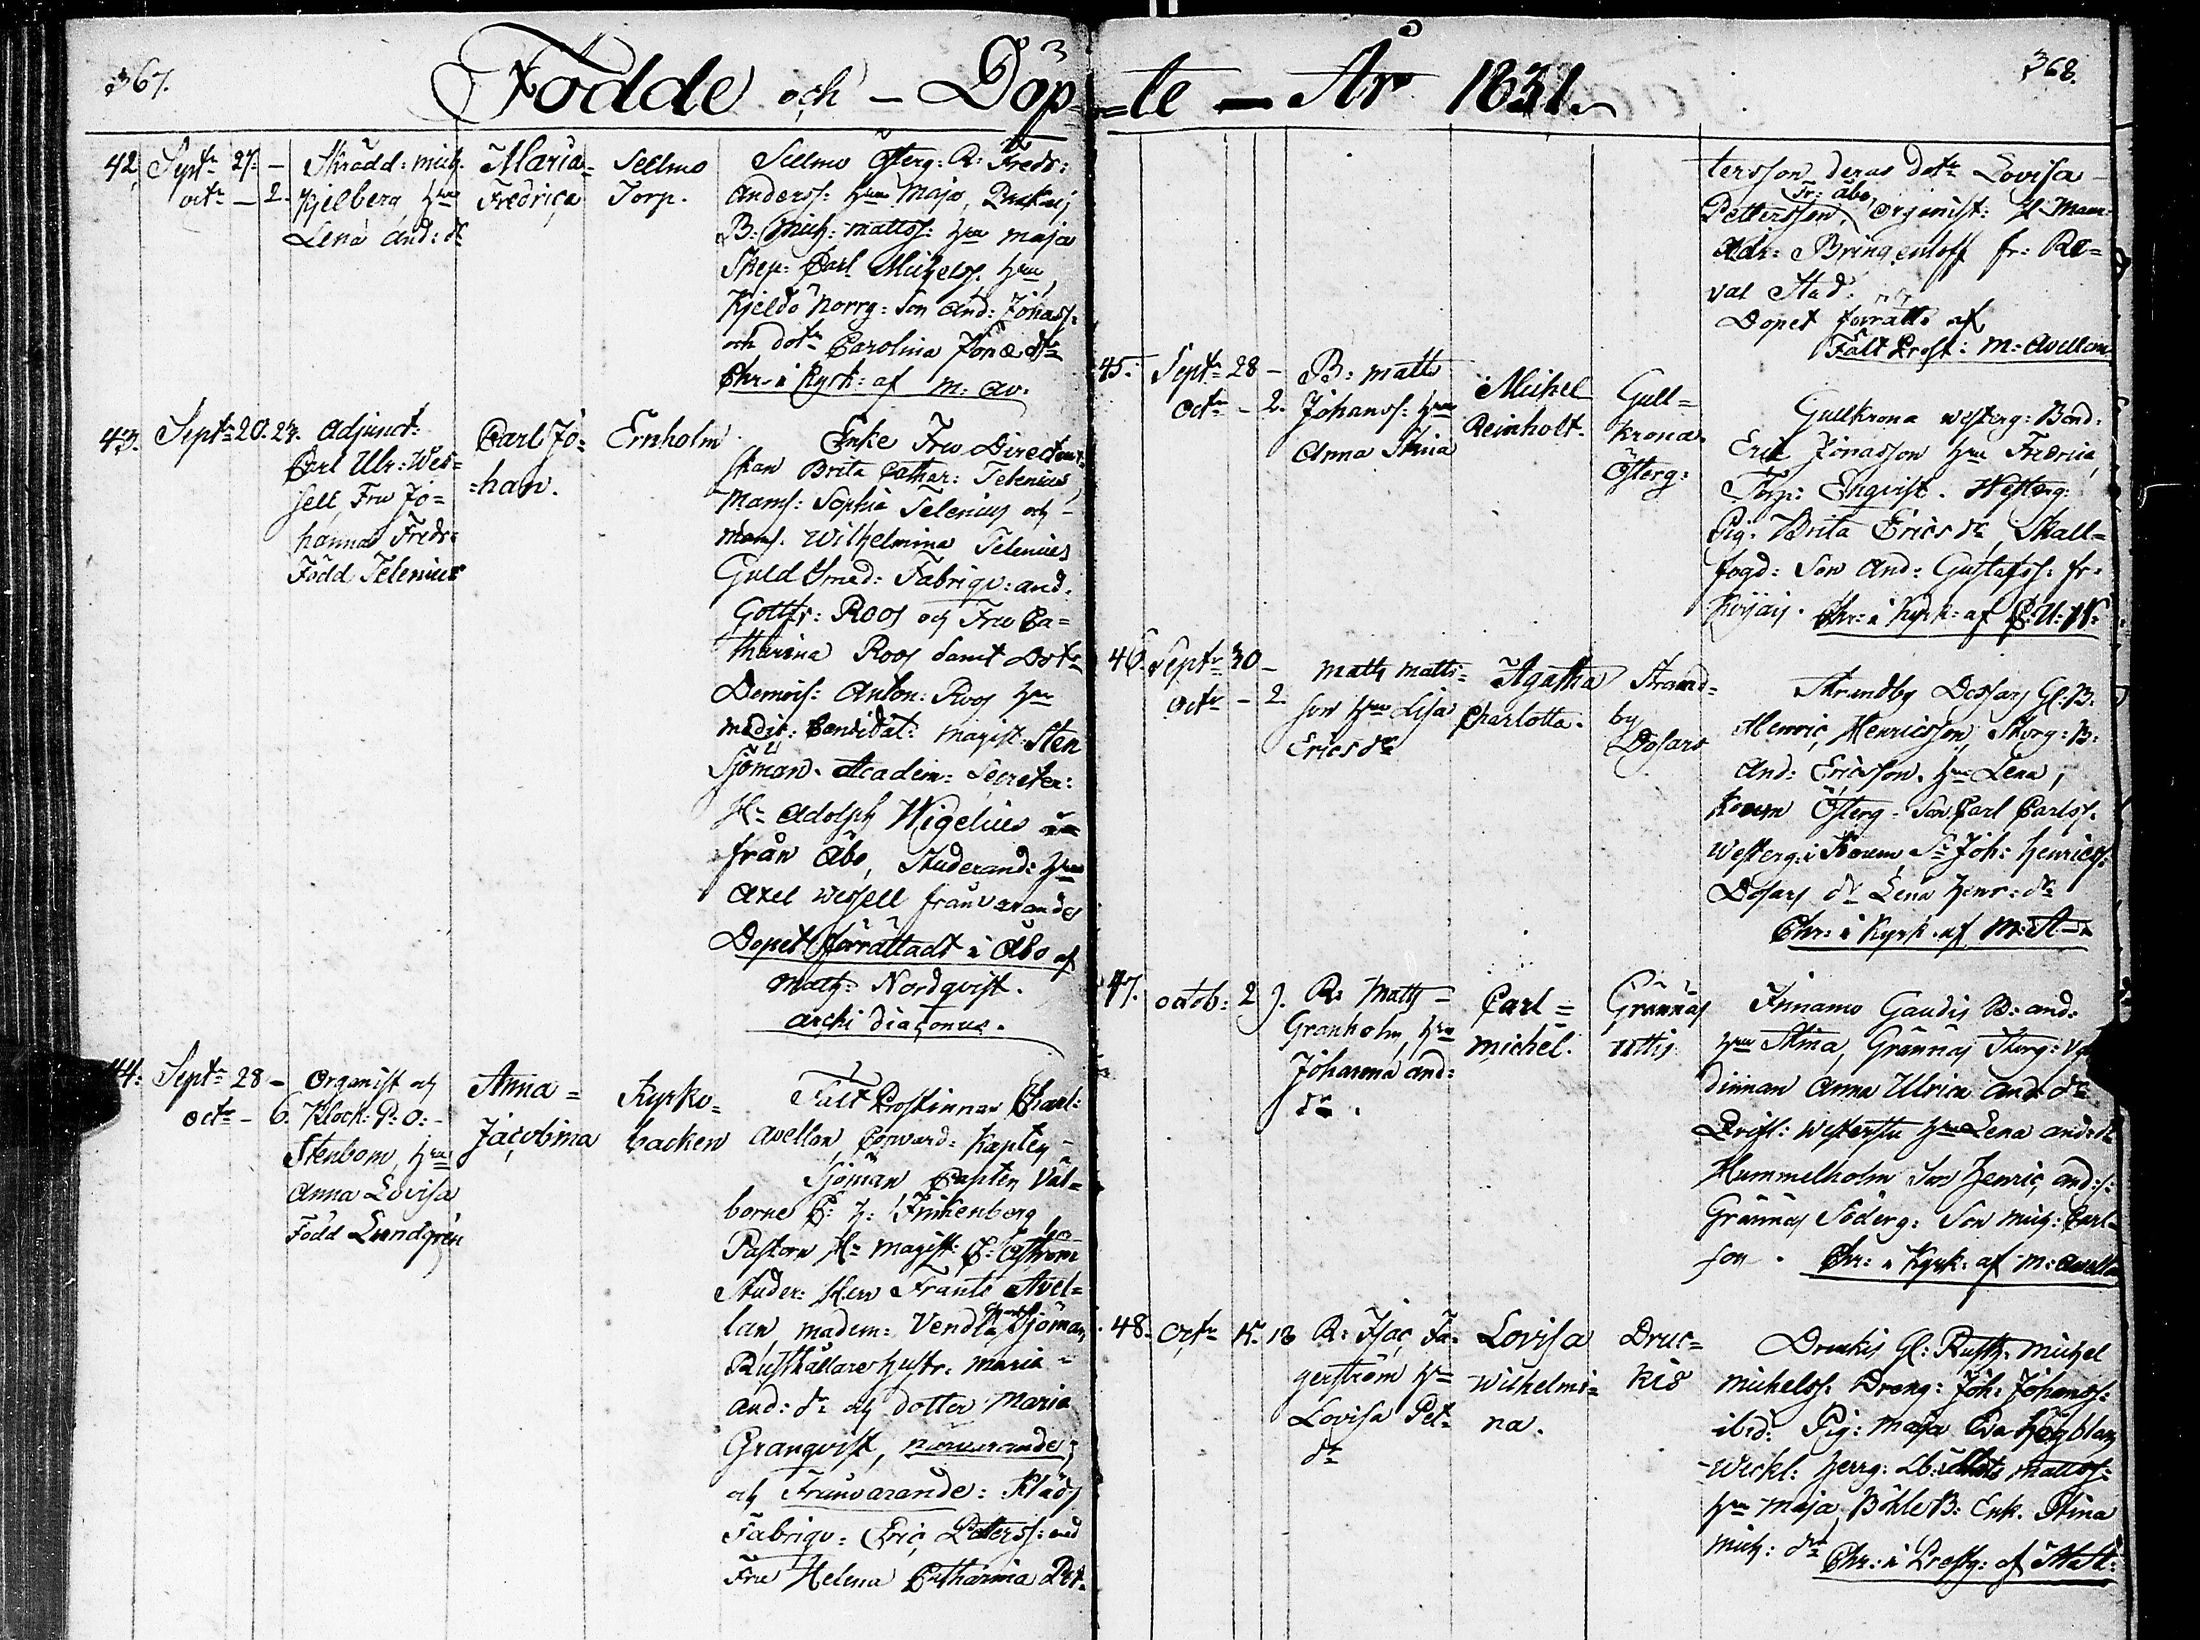 367.
Födde och – Döp-
42. Septr 27. –
octr – 2.
Skrädd: mich.
Kjelberg Hru
Lena And: dr
Maria-
Fredrica
Sellmo
Torp.
Sellmo Österg: R: Fredr:
Anderss: Hru Maja,
B: Mich: Mattss: Hru Maja
Skep: Carl Michelss. Hru
Kjeldo Norrg: Son And: Jonass:
och dotr Carolina Jonæ dr
Chr. i Kyrk: af M: Av.
43. Septr 20. 23.
Adjunct.
Carl Ulr: Wes-
sell, Fru Jo-
hanna Fredr:
Född Telenius
Carl Jo-
=han.
Ernholm
Enke Fru Directeur-
skan Brita Cathar: Telenius,
Mams: Sophia Telenius och –
Mams. Wilhelmina Telenius
Guld Smed: Fabriqv: And.
Gottfr: Roos och Fru Ca-
tharina Roos samt Dotr
Demois: Anton: Roos Hr
Medic: Candidat: Magist: Sten
Sjöman. Academ: Secreter:
Hr Adolph Wigelius
från Åbo, Studerand: Hrr
Axel Wessell frånvarande
Dopet förättadt i Åbo af
Math: Nordqvist.
Archi Diaconus.
44. Septr 28 –
octr – 6.
Organist och
Klock: P: O: –
Stenbom, Hru
Anna Lovisa
Född Lundgren
Anna =
Jacobina
Kyrko-
backen
Fält Prostinnan Charl:
Avellan, Forward: Kapten –
Sjöman Capten Val-
borne C: H: Finkenberg
Pastorn Hr Magist: C: Öström
Studer: Herr Frants Avel-
lan, Madem: Vendla Charl. Sjöman,
Rusthållares Hustr. Maria –
And: dr och dotter Maria
Granqvist, närvarande;
och Frånvarande: Kläds
Fabriqv: Eric Peterss: med
Fru Helena Catharina Pet-
-te – År 1831.
368.
tersson deras dotr Lovisa –
Pettersson, Fr: Åbo, Organist: H: Mam:
Adr: Bringenloff fr: Re-
val Stad.
Dopet förrätts af
Fält Prost: M: Avellan
45. Septr 28 –
octr – 2.
B: Matts
Johanss: Hru
Anna Stina
Michel
Reinholt.
Gull-
krona
Österg:
Gullkrona Westerg: Bond:
Eric Jonasson Hru Fredrica,
Torp: Engvist. Westerg:
Pig. Brita Erics dr, Skall-
fogd: Son And: Gustafss: fr.
Chr: i Kyrk: af C: U: W:
46. Septr 30 –
octr – 2
Matts Matts-
son Hru Lisa
Erics dr
Agatha
Charlotta.
Strand-
by
Dosars
Strandby Dosars Gl: B:
Henric Henricsson, Storg: B:
And: Ericsson. Hru Lena,
Kouem Österg. Son Carl Carlss.
Westerg: i Kouem Sr Joh: Henricss:
Dosars dr Lena Henr: dr
Chr: i Kyrk. af M: A –
47. Octob: 2 9.
R: Matts –
Granholm, Hru
Johanna And:
dr.
Carl =
Michel.
Grännäs
Uttis
Innamo Gaudis B: And:
Hru Stina, Grännäs Storg:
dinnan Anna Ulrica And: dr
Hru Lena And: dr
Hummelholm Son Henric And: s:
Grännäs Söderg: Son Mich: Carl-
son. Chr: i Kyrk: af M: Avella
48. Octr 15. 18
R: Isac Fa-
gerström Hru
Lovisa Pet-
dr
Lovisa
Wilhelmi-
na.
Druc-
kis
Druckis Gl: Rusth. Michel
Michelss. Dreng: Joh: Johanss:
ibid: Pig: Maja Eva Högblom
Wickl: Herrg: Lb: Matts Mattss:
Hru Maja, Böhle B: Enk. Stina
Mich: dr Chr: i Prestg: af